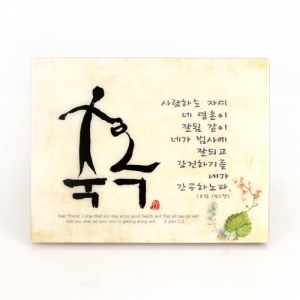 축복
사랑하는 자여
네 영혼이
잘됨 같이
네가 범사에
잘되고
강건하기를
내가
간구하노라
(요삼 1장2절)
Dear friend, I pray that you may enjoy good health and that all may go well
with you, even as your soul is getting along well. 3 John 1:2